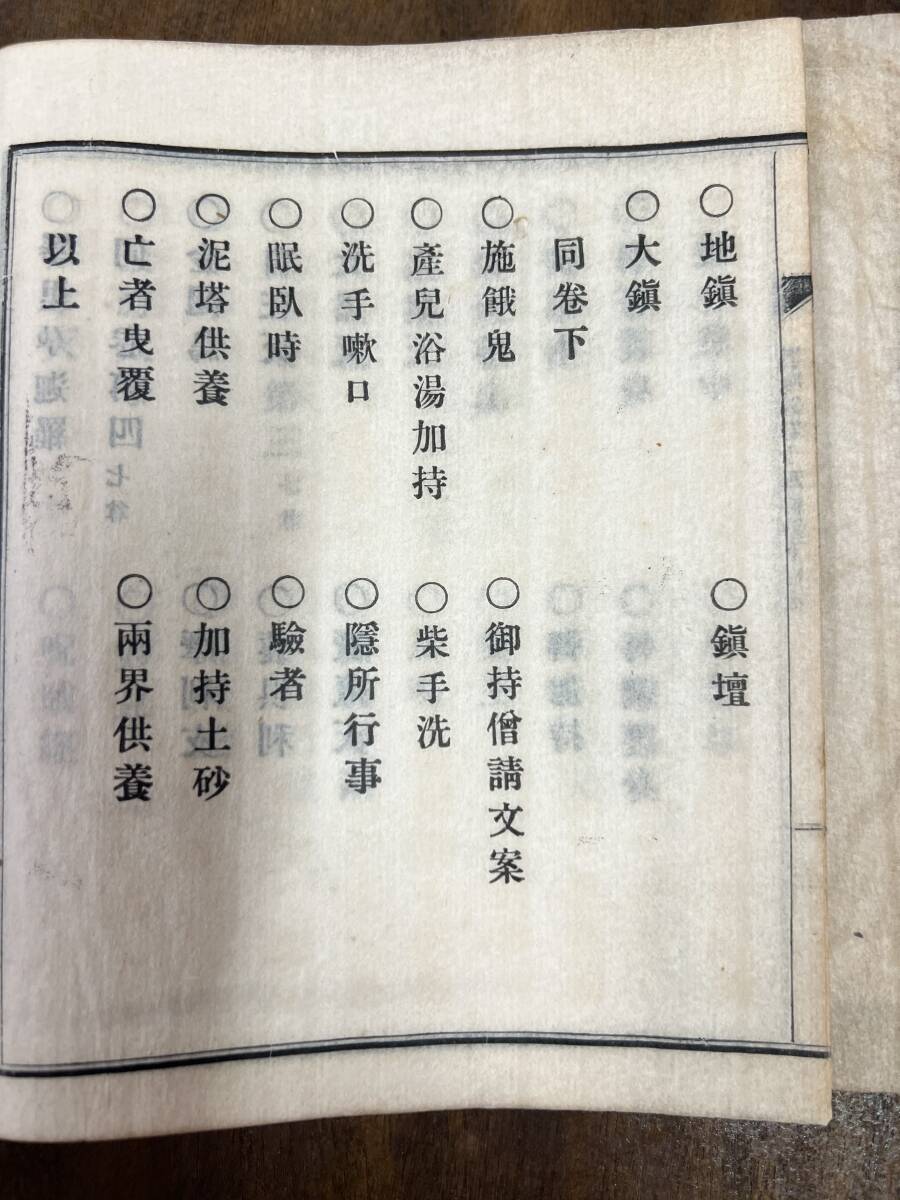 ○地鎭　○鎭壇
○大鎭
同卷下
○施餓鬼　○御持僧請文案
○產兒浴湯加持　○柴手洗
○洗手嗽口　○隱所行事
○眠臥時　○驗者
○泥塔供養　○加持土砂
○亡者曳覆　○兩界供養
○以上